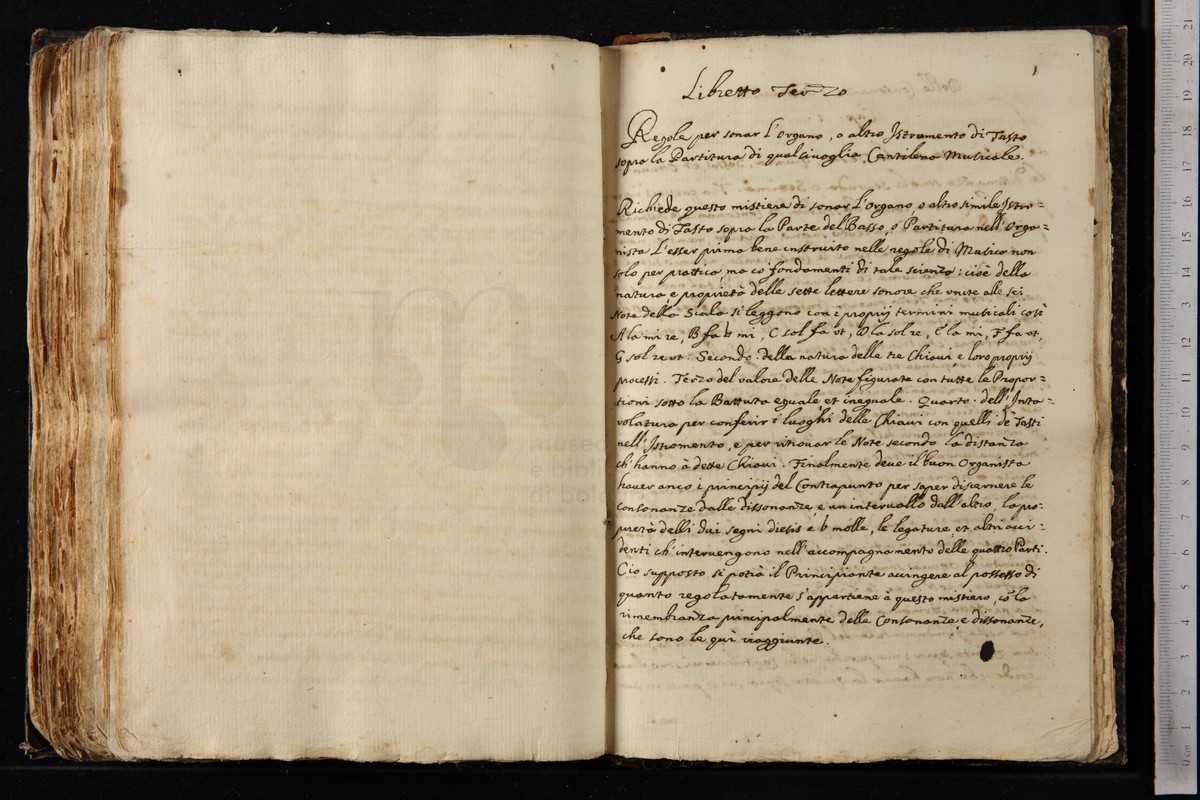 1
Libretto Terzo
Regole per sonar l'Organo, o altro Istromento di Tasto
sopra la Partitura di qualsivoglia Cantilena Musicale.
Richiede questo mistiere di sonar l'Organo, o altro simile Istro=
mento di Tasto sopra la Parte del Basso, o Partitura nell'Orga=
nista l'esser prima bene instruito nelle regole di Musico non
solo per prattica, ma co' fondamenti di tale scienza: cioè della
natura e proprietà delle sette lettere sonore che unite alle sei
Note della Scala si leggono con i proprij termini musicali così
A la mi re, B fa ♮ mi, C sol fa ut, D la sol re, E la mi, F fa ut,
G sol re ut. Secondo: della natura delle tre Chiavi, e loro proprij
processi. Terzo del valore delle Note figurate con tutte le Propor=
tioni sotto la Battuta eguale et ineguale. Quarto. dell'Inta=
volatura per conferir i luoghi delle Chiavi con quelli de Tasti
nell'Istromento, e per ritrovar le Note secondo la distanza
ch'hanno à dette Chiavi. Finalmente deve il buon Organista
haver anco i principij del Contrapunto per saper discernere le
consonanze dalle dissonanze, e un intervallo dall'altro, la pro-
prietà delli dui segni diesis e b molle, le legature et altri acci=
denti ch'intervengono nell'accompagnamento delle quattro Parti.
Cio supposto si potrà il Principiante accingere al possesso di
quanto regolatamente s'appartiene à questo mistiero, cō la
rimembranza principalmente delle Consonanze, e dissonanze,
che sono le qui raggiunte.
museo
e biblio
di bolo
0 cm 1 2 3 4 5 6 7 8 9 10 11 12 13 14 15 16 17 18 19 20 21